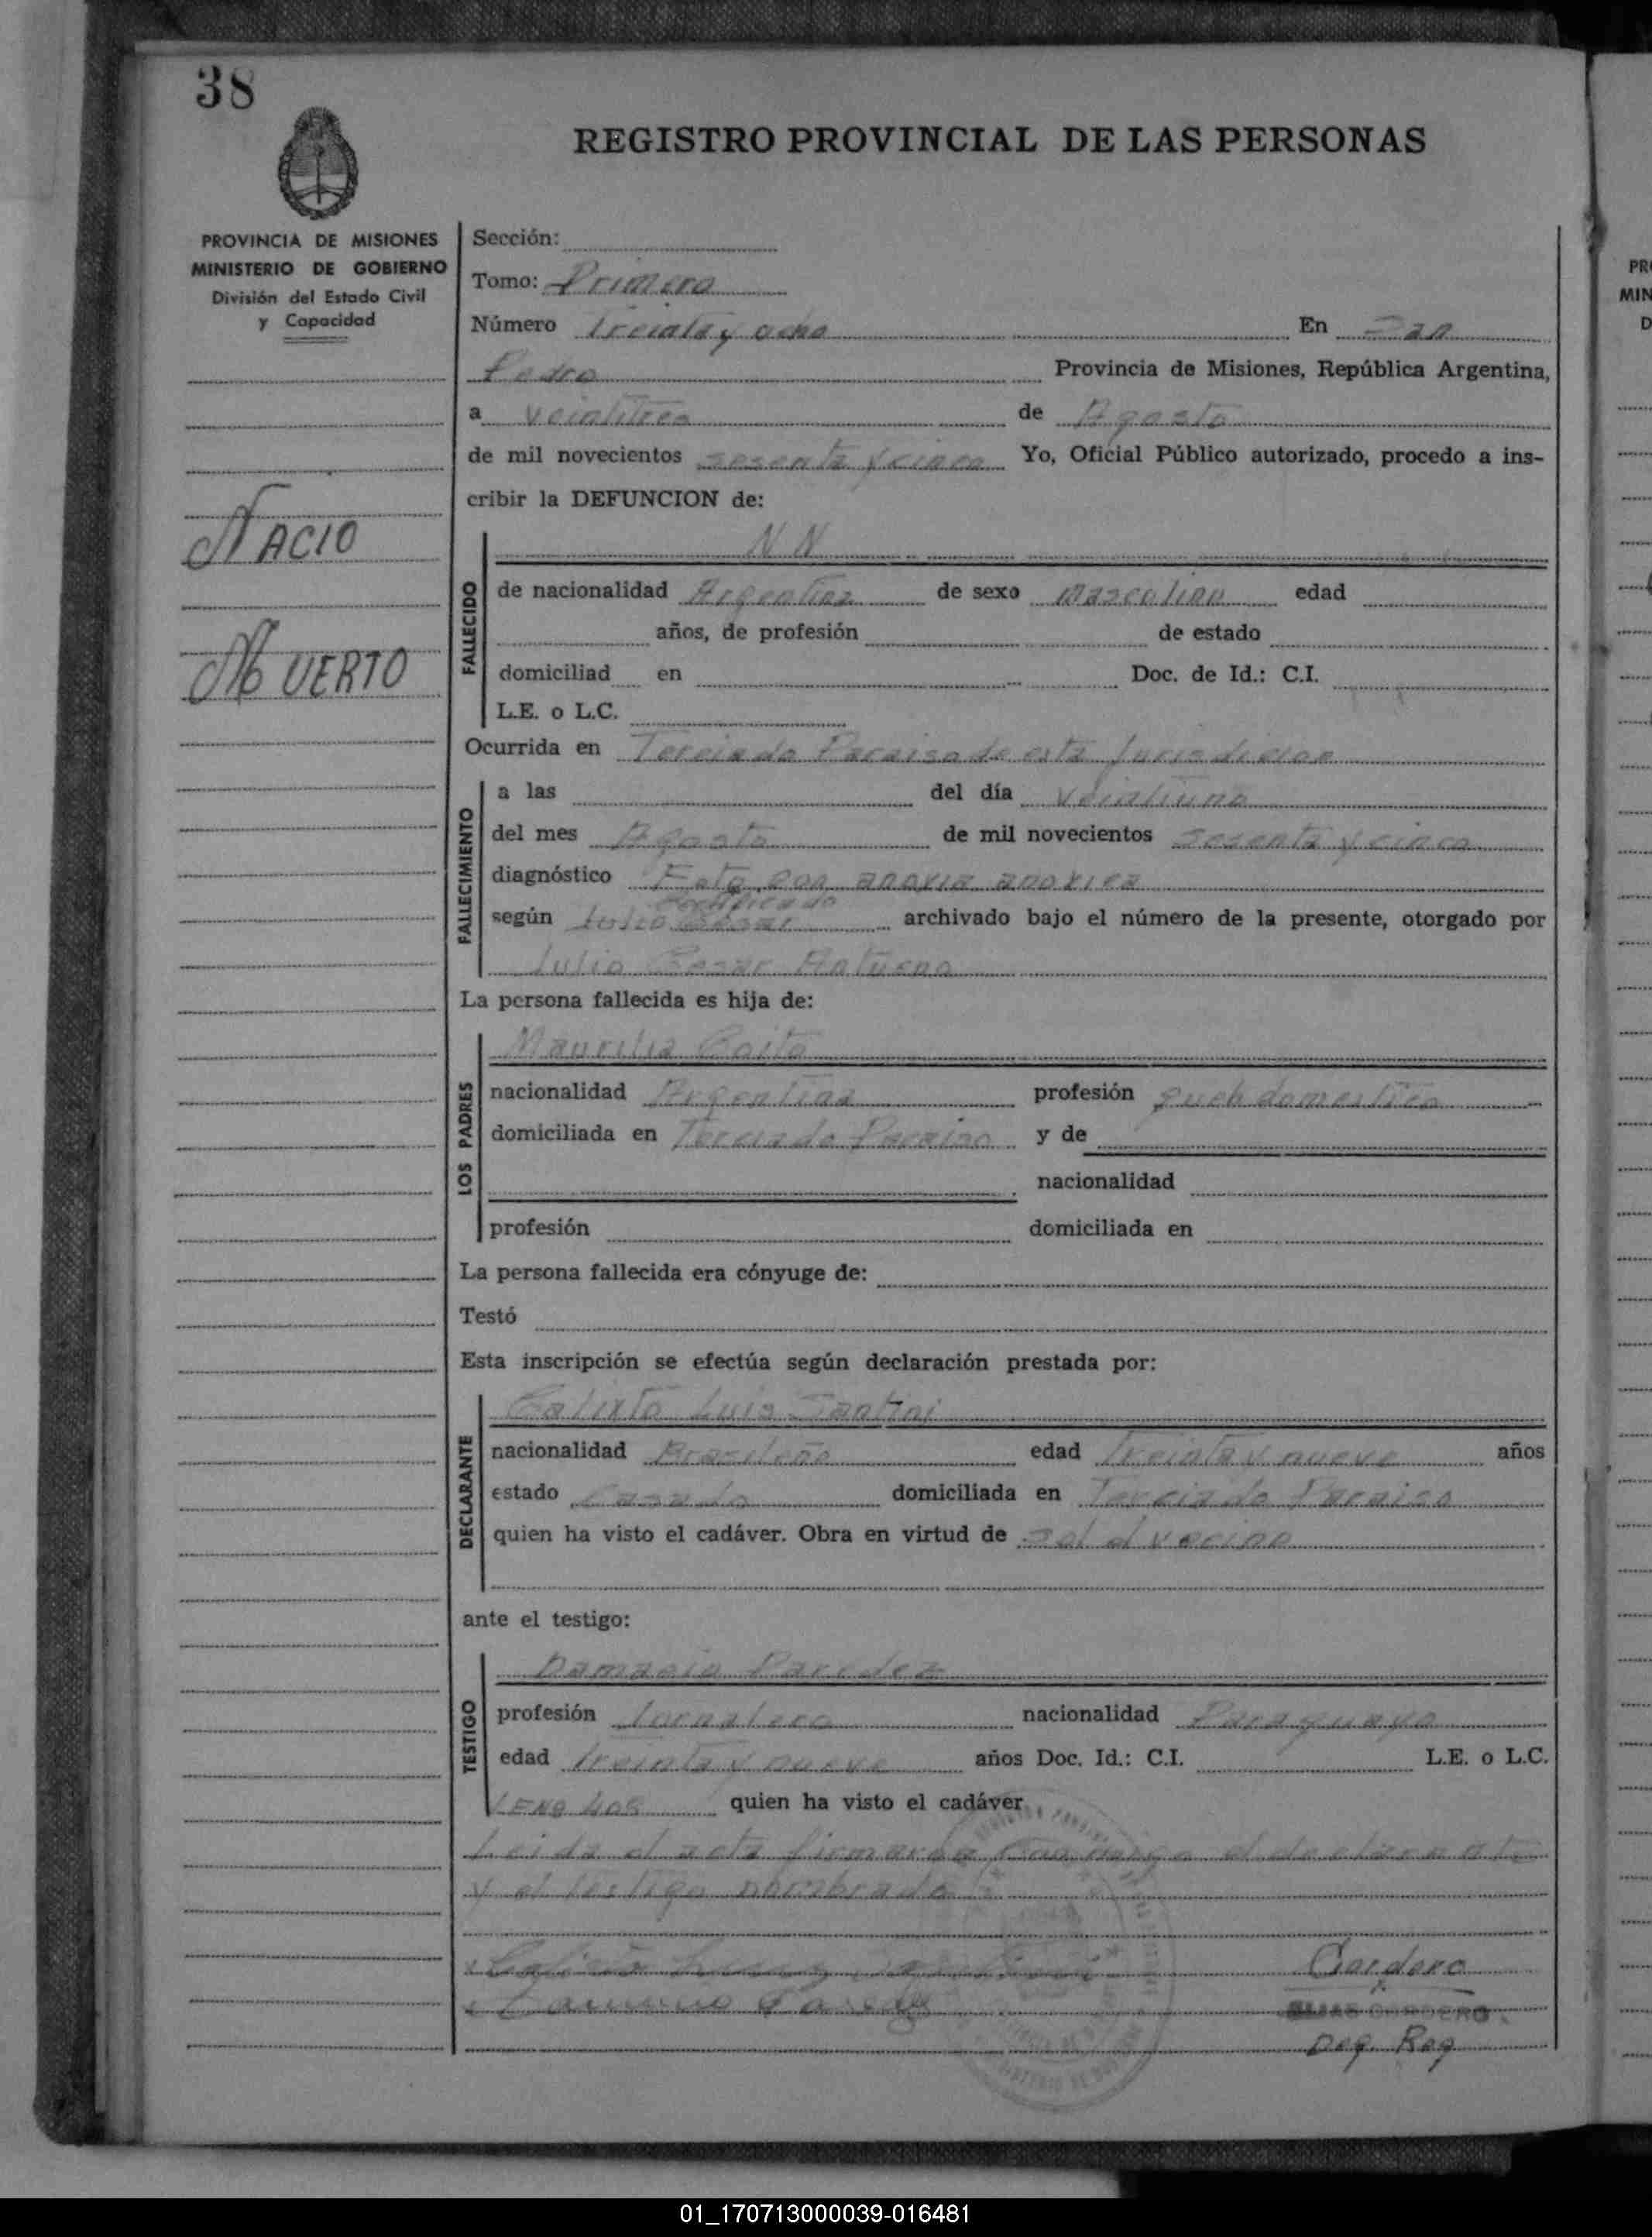 38
REGISTRO PROVINCIAL DE LAS PERSONAS
PROVINCIA DE MISIONES
MINISTERIO DE GOBIERNO
División del Estado Civil
y Capacidad
NACIO
MUERTO
Sección:
Tomo: Primero
Número Treinta y ocho En San
Pedro Provincia de Misiones, República Argentina,
a veintitres de Agosto
de mil novecientos sesenta y cinco Yo, Oficial Público autorizado, procedo a ins-
cribir la DEFUNCION de:
N N
FALLECIDO
de nacionalidad Argentina de sexo masculino edad
años, de profesión de estado
domiciliad en Doc. de Id.: C.I.
L.E. o L.C.
Ocurrida en Terciado Paraiso de esta Jurisdicion
FALLECIMIENTO
a las del día veintiuno
del mes Agosto de mil novecientos sesenta y cinco
diagnóstico Feto con anoxia anoxica
certificado
según Julio Cesar archivado bajo el número de la presente, otorgado por
Julio Cesar
La persona fallecida es hija de:
LOS PADRES
Maurilia
nacionalidad Argentina profesión queh domestico
domiciliada en Terciado Paraiso y de
nacionalidad
profesión domiciliada en
La persona fallecida era cónyuge de:
Testó
Esta inscripción se efectúa según declaración prestada por:
DECLARANTE
Calixto Luis Santini
nacionalidad Brasileño edad Treinta y nueve años
estado Casado domiciliada en Terciado Paraiso
quien ha visto el cadáver. Obra en virtud de vecino
ante el testigo:
TESTIGO
Damacio Paredez
profesión Jornalero nacionalidad Paraguayo
edad treinta y nueve años Doc. Id.: C.I. L.E. o L.C.
quien ha visto el cadáver
Leida el acta firmaron el declarante
y el testigo nombrado
Cordero
ELIAS CORDERO
Deg. Reg
PR
MIN
D
01_170713000039-016481